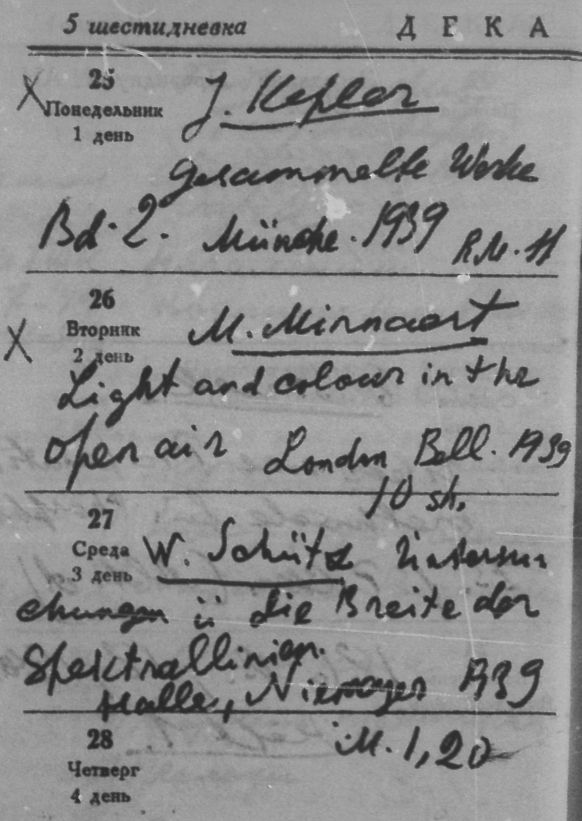 5 шестидневка ДЕКА
25
Понедельник
1 день
J. Kepler
Gesammelte Werke
Bd. 2. Münche. 1939 R.M. 11
26
Вторник
2 день
M. Minnaert
Light and colour in the
open air London Bell. 1939
10 sh.
27
Среда
3 день
W. Schütz Untersu
chungen ü die Breite der
Spektrallinien.
Halle, Niemeyer 1939
28
Четверг
4 день
M. 1,20